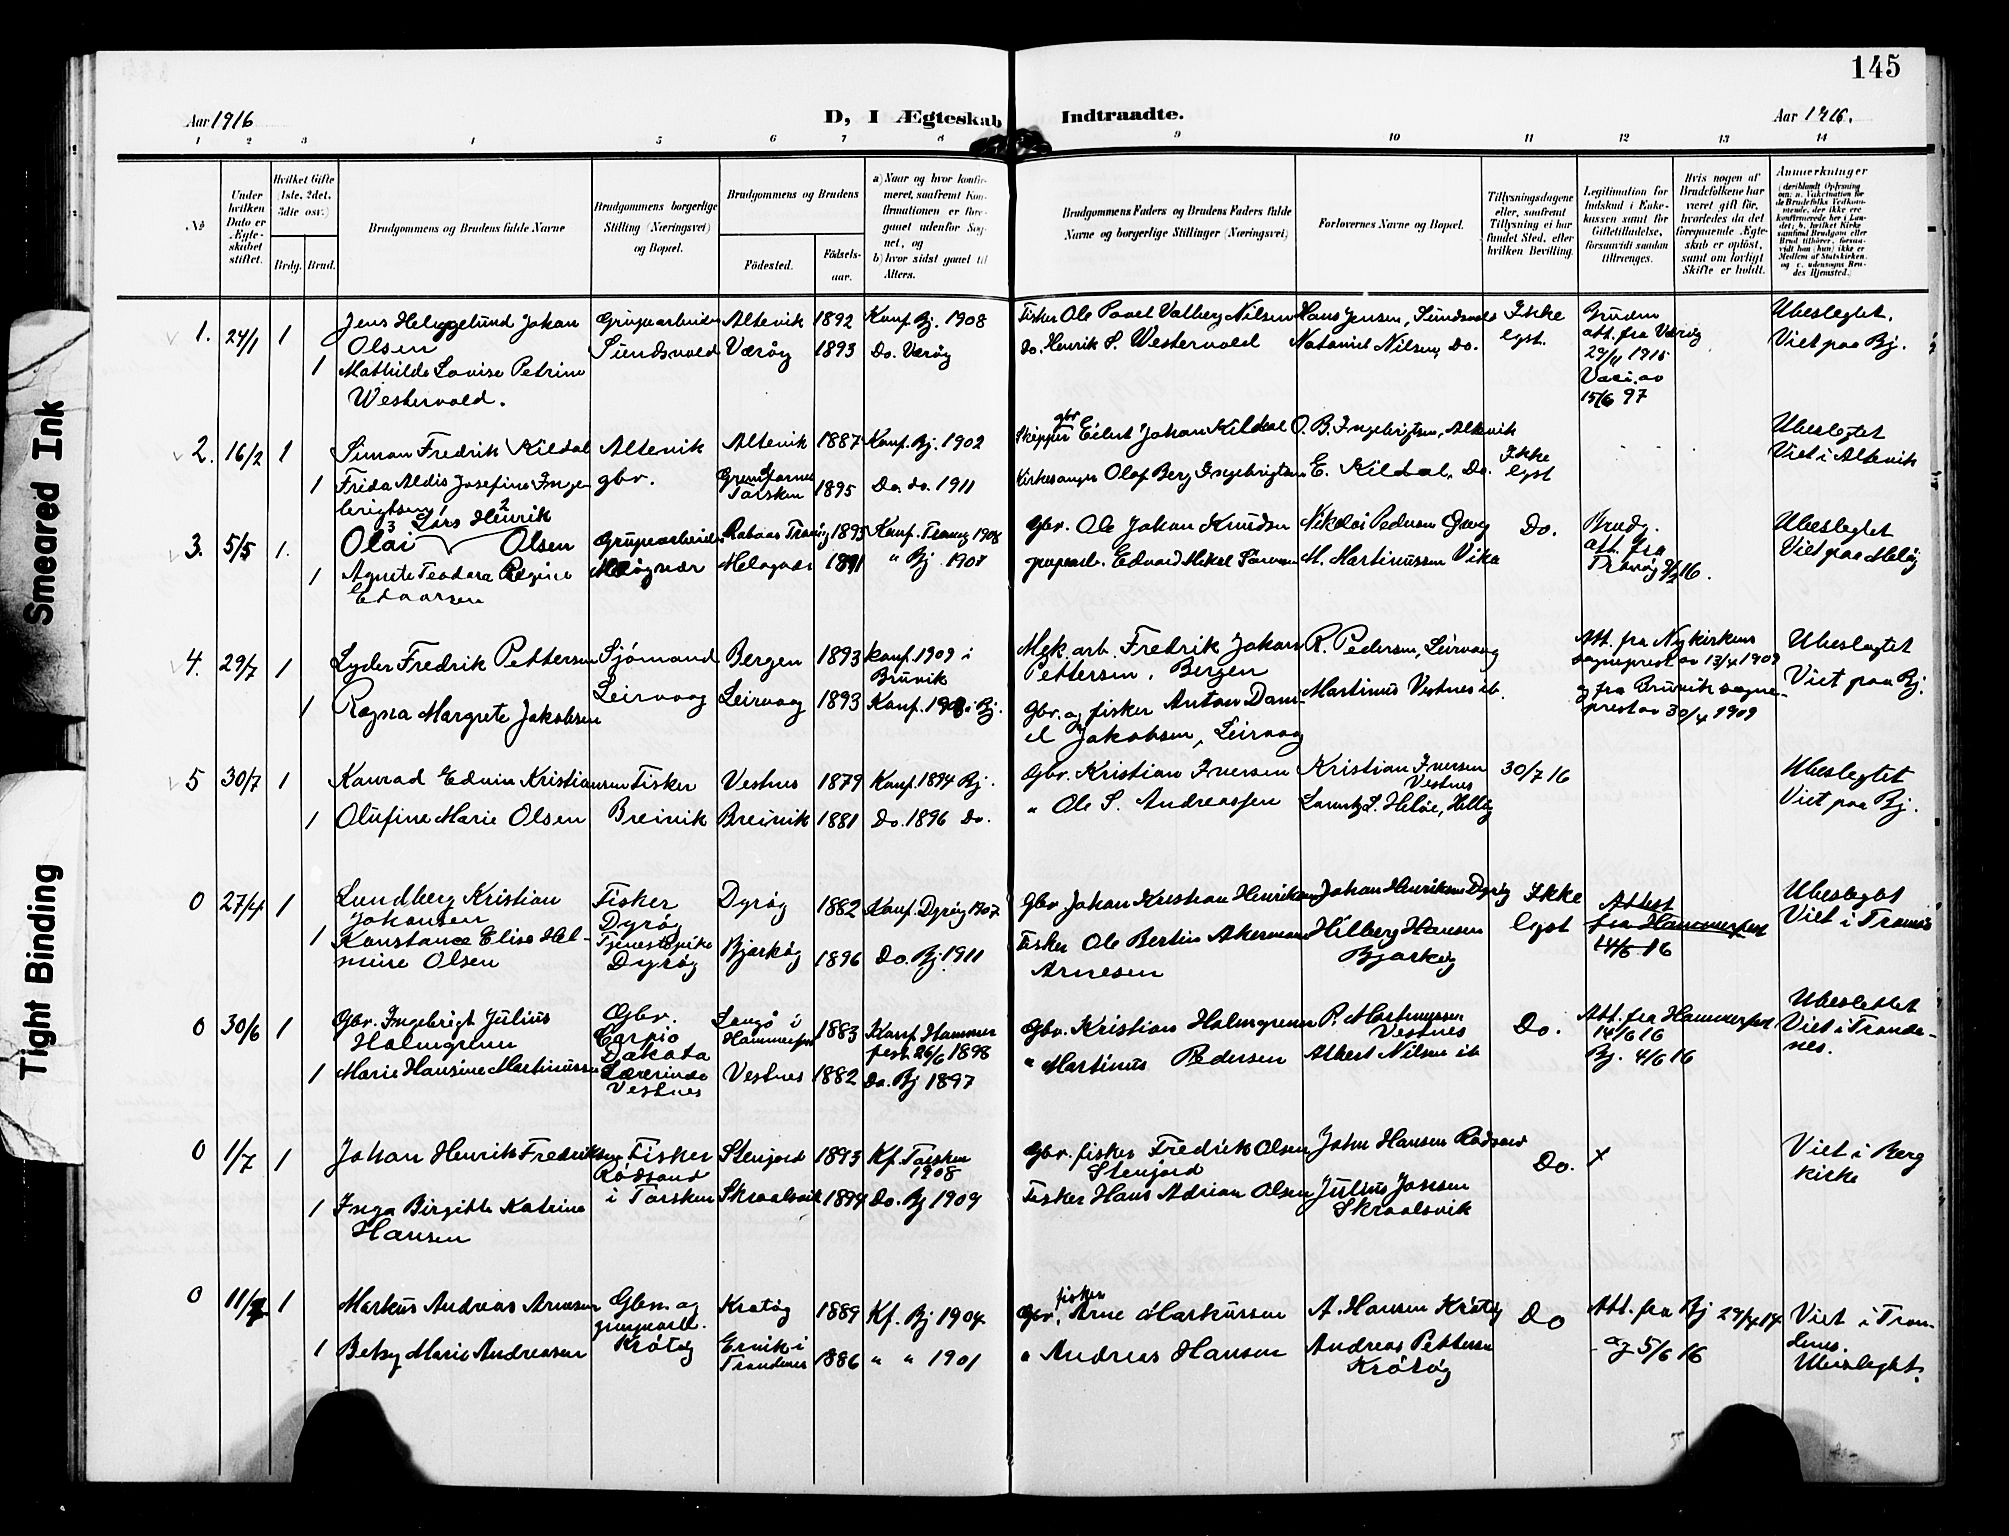 145
Aar 1916
D, I Ægteskab Indtraadte.
Aar 1916.
1 2 3 4 5 6 7 8 9 10 11 12 13 14
No
Under hvilken Dato er Ægteskabet stiftet.
Hvilket Gifte (1ste, 2det, 3die osv.)
Brdg. Brud.
Brudgommens og Brudens fulde Navne
Brudgommens borgerlige Stilling (Næringsvei) og Bopæl.
Brudgommens og Brudens
Fødested.
Fødselsaar.
a) Naar og hvor konfirmeret, saafremt Konfirmationen er foregaaet udenfor Sognet, og
b) hvor sidst gaaet til Alters.
Brudgommens Faders og Brudens Faders fulde Navne og borgerlige Stillinger (Næringsvei)
Forlovernes Navne og Bopæl.
Tillysningsdagene eller, saafremt Tillysning ei har fundet Sted, efter hvilken Bevilling.
Legitimation for Indskud i Enkekassen samt for Giftetilladelse, forsaavidt saadan tiltrænges.
Hvis nogen af Brudefolkene har været gift før, hvorledes da det foregaaende Ægteskab er opløst, samt om lovligt Skifte er holdt.
Anmærkninger
1. 24/1 1 Jens Heluggelund Johan Olsen
Grubearbeider Sundsvold
Altevik 1892 Konf. Bj. 1908
Fisker Ole Povel Valberg Nilsen
Hans Jensen, Sundsvold
Ikke lyst.
att. fra Værøy
Vacc. av 15/6 97
Ubeslegtet.
Viet paa Bj.
1 Mathilde Lovise Petrine Westervold.
Værøy 1893 Do. Værøy
Do. Henrik S. Westervold
Nataniel Nilsen, Do.
2. 16/2 1 Simon Fredrik Kildal
Altevik gbr.
Altevik 1887 Konf. Bj. 1902
Skipper gbr Eilert Johan Kildal
O. B. Ingebrigtsen, Altevik
Ikke lyst
Ubeslegtet
Viet i Altevik
1 Frida Aldis Josefine Ingebrigtsen
Torsken 1895 Do. do. 1911
Kirkesanger Olaf Berg Ingebrigtsen
E. Kildal, Do.
3. 5/5 1. Olai Lars Henrik Olsen
3 2
Grubearbeider
Tranøy 1895 Konf. Tranøy 1908
Gbr. Ole Johan Knudsen
Nikolai Pedersen
Do.
Brudg. att. fra Tranøy
16.
Ubeslegtet
Viet paa Meløy
1 Agnete Teodora Regine Edvarsen
1891 " Bj. 1907
Edvard Mikal
M. Martinussen Vika
4. 29/7 1 Lyder Fredrik Pettersen
Sjömand Leirvaag
Bergen 1893 konf. 1909 i Bruvik
Mek. arb. Fredrik Johan Pettersen, Bergen
R. Pedersen, Leirvaag
Att. fra Nykirkens sogneprest av 13/4 1909
og fra Bruvik sogneprest av 30/4 1909
Ubeslegtet
Viet paa Bj.
1 Ragna Margrete Jakobsen
Leirvaag 1893 Konf. 1908 i Bj.
Gbr. og fisker Anton Daniel Jakobsen, Leirvaag
Martinus Vestnes ib.
5 30/7 1 Konrad Edvin Kristiansen
Fisker Breivik
Vestnes 1879 Konf. 1894 Bj.
Gbr. Kristian Iversen
Kristian Iversen Vestnes
30/7 16
Ubeslegtet
Viet paa Bj.
1 Olufine Marie Olsen
Breivik 1881 Do. 1896 Do.
" Ole S. Andreassen
Heløe,
0 27/4 1 Lundberg Kristian Johansen
Fisker Dyrøy
Dyrøy 1882 Konf. Dyrøy
Gbr. Johan Kristian Henriksen
Johan Henriksen Dyrøy
Ikke lyst
Attest
fra Hammerfest
14/6 16
Ubeslegtet
Viet i Tromsø
1 Konstance Elise Helmine Olsen
Tjenestepike Dyrøy
Bjarkøy 1896 Do. Bj. 1911
Fisker Ole Bertin Akerman Arnesen
Hilberg Hansen Bjarkøy
0 30/6 1 Gbr. Ingebrigt Julius Holmgrenn
Gbr. Carpio Dakota
Hammerfest 1883 Konf. Hammerfest 26/6 1898
Gbr. Kristian Holmgrenn
P. Martinussen Vestnes
Do.
Att. fra Hammerfest 14/6 16
Bj. 4/6 16
Ubeslettet
Viet i Trondenes.
1 Marie Hansine Martinussen
Lærerinde Vestnes
Vestnes 1882 Do. Bj 1897
" Martinus Pedersen
Albert Nilsen ib
0 1/7 1 Johan Henrik Fredriksen
Fisker Rødsand i Torsken
Stenjord 1893 Kf. Torsken 1908
Gbr. fisker Fredrik Olsen Stenjord
John Hansen Rödsand
Do.
x
Viet i Berg kirke
1 Inga Birgitte Katrine Hansen
Skroalsvik 1894 Do. Bj 1909
Fisker Hans Adrian Olsen
Julius Jonsen Skroalsvik
0 11/7 1 Markus Andreas Arnesen
Gbm og Krøtøy
Krøtøy 1889 Kf. Bj 1904
Gbr, fisker Arne Markussen
A. Hansen Krøtøy
Do
Att. fra Bj 29/4 14
og 5/6 16
Viet i Trondenes.
Ubeslegtet.
1 Betsy Marie Andreasen
Ervik i Trondenes 1886 " " 1901
" Andreas Hansen
Andreas Pettersen Krøtøy
Smeared Ink
Tight Binding